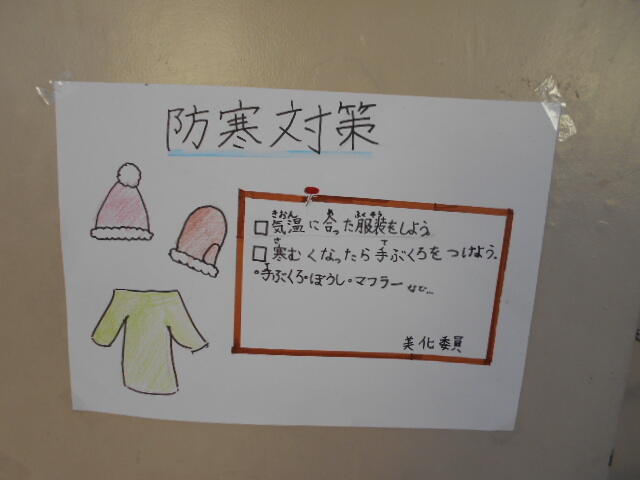 防寒対策
□気温に合った服装をしよう
□寒むくなったら手ぶくろをつけよう.
・手ぶくろ・ぼうし・マフラー など...
美化委員